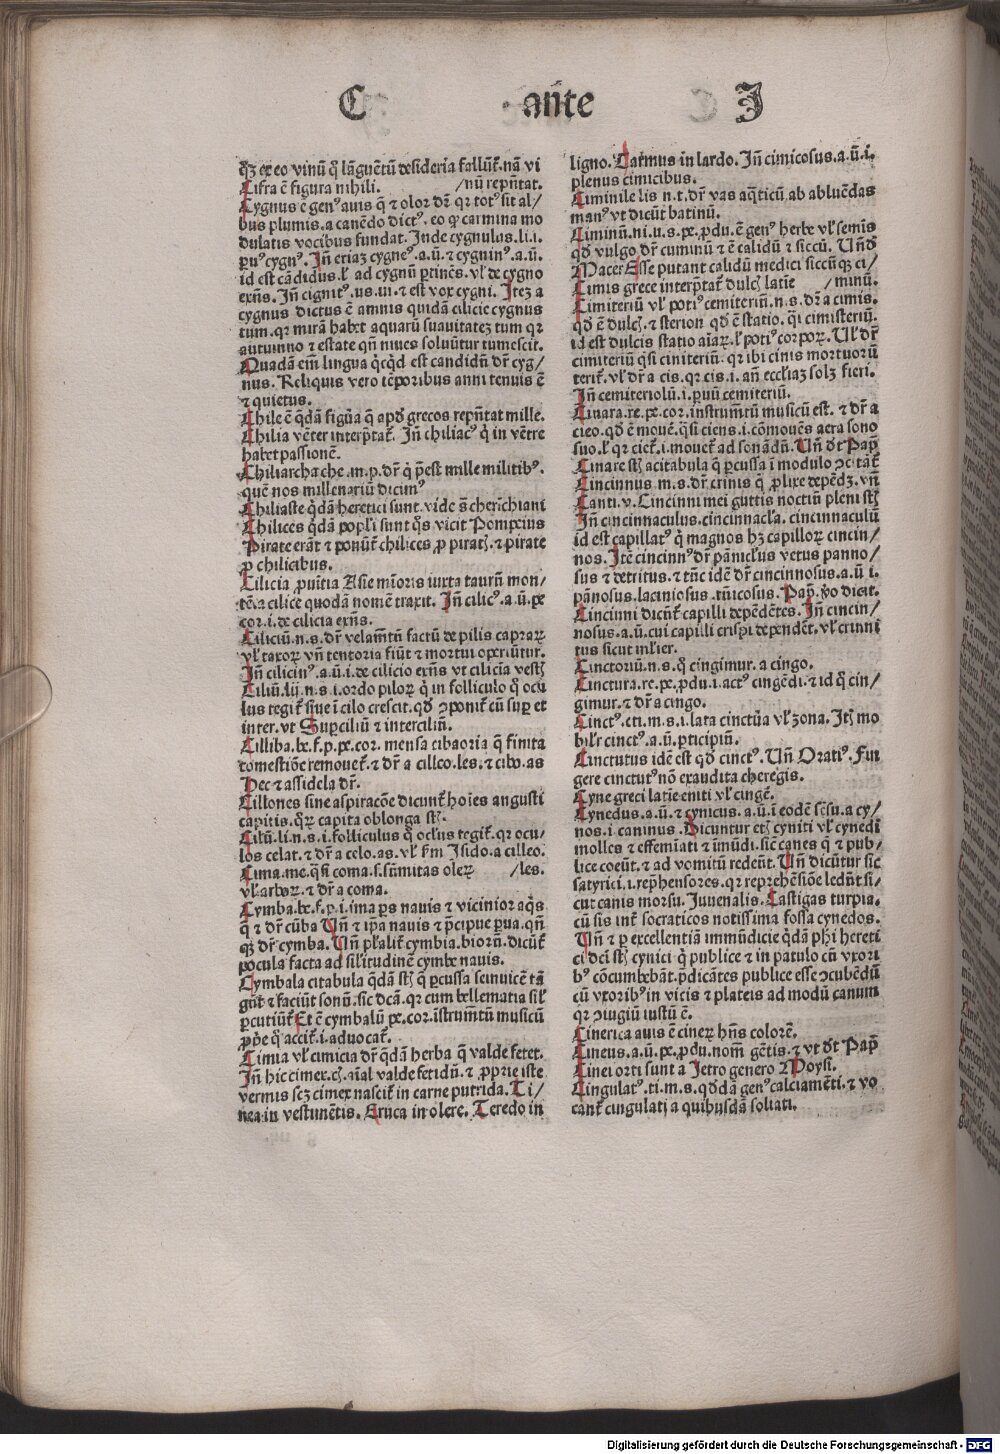 C añte J
qꝫ ex eo vinū q̄ lāguētū desideria fallūt. nā vi
Cifra ē figura nihili. /nū rep̄ntat.
Cygnus ē genꝰ auis q̄ ⁊ olor dr̄ qr totꝰ sit al/
bus plumis. a canēdo dictꝰ. eo ꝙ carmina mo
dulatis vocibus fundat. Inde cygnulus. li. i.
ꝑuꝰ cygnꝰ. Iñ etiaꝫ cygneꝰ. a. ū. ⁊ cygninꝰ. a. ū.
id est cādidus. ł ad cygnū ꝑtinēs. vł de cygno
exñs. Iñ cignitꝰ. us. ui. ⁊ est vox cygni. Iteꝫ a
cygnus dictus ē amnis quidā cilicie cygnus
tum. qr mirā habet aquarū suauitateꝫ tum qr
autumno ⁊ estate qñ niues soluūtur tumescit.
Quadā em̄ lingua qͥcqͥd est candidū dr̄ cyg/
nus. Reliquis vero tēporibus anni tenuis ē
⁊ quietus.
Chile ē q̄dā figūa q̄ apd̄ grecos rep̄ntat mille.
Chilia vēter interp̄tat. Iñ chiliacꝰ qͥ in vētre
habet passionē.
Chiliarcha che. m. p. dr̄ qͥ p̄est mille militibꝰ.
quē nos millenariū dicimꝰ
Chiliaste q̄dā heretici sunt. vide s̄ cherichiani
Chilices q̄dā popłi sunt q̄s vicit Pompeius
Pirate erāt ⁊ ponūt chilices ꝓ piratꝭ. ⁊ pirate
ꝓ chilicibus.
Cilicia ꝓuītia Asie mīoris iuxta taurū mon/
tē. a cilice quodā nomē traxit. Iñ cilicꝰ. a. ū. pe
cor. i. de cilicia exñs.
Ciliciū. n. s. dr̄ velamētū factū de pilis capraꝝ
vł taxoꝝ vñ tentoria fiūt ⁊ mortui operiūtur.
Iñ cilicinꝰ. a. ū. i. de cilicio exñs vt cilicīa vestꝭ
Ciliū. lij. n. s. i. ordo piloꝝ qͥ in folliculo q̄ ocu
lus tegit siue ī cilo crescit. qd̄ ꝯponit cū suꝑ et
inter. vt Suꝑciliū ⁊ interciliū.
Cilliba. be. f. p. pe. cor. mensa cibaoria q̄ finita
comestiōe remouet. ⁊ dr̄ a cilleo. les. ⁊ cibo. as
Hec ⁊ assidela dr̄.
Cillones sine aspiracōe dicunt hoīes angusti
capitis. qͦꝝ capita oblonga st̄.
Cilū. li. n. s. i. folliculus q̄ oclus tegit. qr ocu/
los celat. ⁊ dr̄ a celo. as. vł fm̄ Isido. a cilleo.
Cima. me. q̄si coma. s. sūmitas oleꝝ /les.
vł arboꝝ. ⁊ dr̄ a coma.
Cymba. be. f. p. i. ima ꝑs nauis ⁊ vicinior aqͥs
q̄ ⁊ dr̄ cūba Vñ ⁊ ip̄a nauis ⁊ p̄cipue ꝑua. qñ
qꝫ dr̄ cymba. Vñ płalit cymbia. biorū. dicūt
pocula facta ad sil̄itudinē cymbe nauis.
Cymbala citabula q̄dā st̄ q̄ ꝑcussa seinuicē tā
gūt ⁊ faciūt sonū. sic dcā. qr cum bellematia sił
ꝑcutiūt Et ē cymbalū pe. cor. īstrumētū musicū
ꝓp̄e qͥ accit. i. aduocat.
Cimia vł cimicia dr̄ q̄dā herba q̄ valde fetet.
Iñ hic cimex. cꝭ. aīal valde fetidū. ⁊ ꝓprie iste
vermis scꝫ cimex nascit in carne putrida. Ti/
nea in vestimētis. Eruca in olere. Teredo in
ligno. Tarmus in lardo. Iñ cimicosus. a. ū. i.
plenus cimicibus.
Ciminile lis n. t. dr̄ vas aq̄ticū ab abluēdas
manꝰ vt dicūt batinū.
Ciminū. ni. u. s. pe. ꝓdu. ē genꝰ herbe vł semīs
qd̄ vulgo dr̄ cuminū ⁊ ē calidū ⁊ siccū. Vñ
Macer Esse putant calidū medici siccūqꝫ ci/
Cimis grece interp̄tat dulcꝭ latīe /minū.
Cimiteriū vł potiꝰ cemiteriū. n. s. dr̄ a cimis.
qd̄ ē dulcꝭ. ⁊ sterion qd̄ ē statio. q̄si cimisteriū.
id est dulcis statio aīaꝝ. ł potiꝰ corpoꝝ. Vł dr̄
cimiteriū q̄si ciniteriū. qr ibi cinis mortuorū
terit. vł dr̄ a cis. qr cis. i. añ eccłiaꝫ solꝫ fieri.
Iñ cemiteriolū. i. ꝑuū cemiteriū.
Cinara. re. pe. cor. instrumētū musicū est. ⁊ dr̄ a
cieo. qd̄ ē mouē. q̄si ciens. i. cōmouēs aera sono
suo. ł qr ciet. i. mouet ad sonādū. Vñ dt̄ Pap̄
Cinare st̄ acitabula q̄ ꝑcussa ī modulo ꝯcitāt
Cincinnus. m. s. dr̄ crinis q̄ ꝓlixe depēdꝫ. vñ
Canti. v. Cincinni mei guttis noctiū pleni st̄
Iñ cincinnaculus. cincinnacła. cincinnaculū
id est capillatꝰ qͥ magnos hꝫ capilloꝝ cincin/
nos. Itē cincinnꝰ dr̄ pānicłus vetus panno/
sus ⁊ detritus. ⁊ tūc idē dr̄ cincinnosus. a. ū i.
pānosus. laciniosus. tūicosus. Pap̄. ꝟo dicit.
Cincinni dicūt capilli depēdētes. Iñ cincin/
nosus. a. ū. cui capilli crispi dependēt. vł crinni
tus sicut młier.
Cinctoriū. n. s. q̄ cingimur. a cingo.
Cinctura. re. pe. ꝓdu. i. actꝰ cingēdi. ⁊ id q̄ cin/
gimur. ⁊ dr̄ a cingo.
Cinctꝰ. cti. m. s. i. lata cinctūa vł zona. Itꝫ mo
bilr̄ cinctꝰ. a. ū. ꝑticipiū.
Cinctutus idē est qd̄ cinctꝰ. Vñ Oratiꝰ. Fin
gere cinctutꝰ nō exaudita chetegis.
Cyne greci latīe eniti vł cingē.
Cynedus. a. ū. ⁊ cynicus. a. ū. i eodē sēsu. a cy/
nos. i. caninus. Dicuntur etꝭ cyniti vł cynedi
molles ⁊ effemīati ⁊ īmūdi. sic canes q̄ ⁊ pub/
lice coeūt. ⁊ ad vomitū redeūt. Vñ dicūtur sic
satyrici. i. rep̄hensores. qr reprehēsiōe ledūt si/
cut canis morsu. Iuuenalis. Castigas turpia.
cū sis int̄ socraticos notissima fossa cynedos.
Vñ ⁊ ꝑ excellentiā immūdicie q̄dā ph̄i hereti
ci dc̄i st̄ cynici q̄ publice ⁊ in patulo cū vxori
bꝰ cōcumbebāt. p̄dicātes publice esse ꝯcubēdū
cū vxoribꝰ in vicis ⁊ plateis ad modū canum
qr ꝯiugiū iustū ē.
Cinerica auis ē cineꝝ hñs colorē.
Cineus. a. ū. pe. ꝓdu. nom̄ gētis. ⁊ vt dt̄ Pap̄
Cinei orti sunt a Jetro genero Moysi.
Cingulatꝰ. ti. m. s. qd̄dā genꝰ calciamēti. ⁊ vo
cant cingulati a quibusdā soliati.
Digitalisierung gefördert durch die Deutsche Forschungsgemeinschaft - DFG